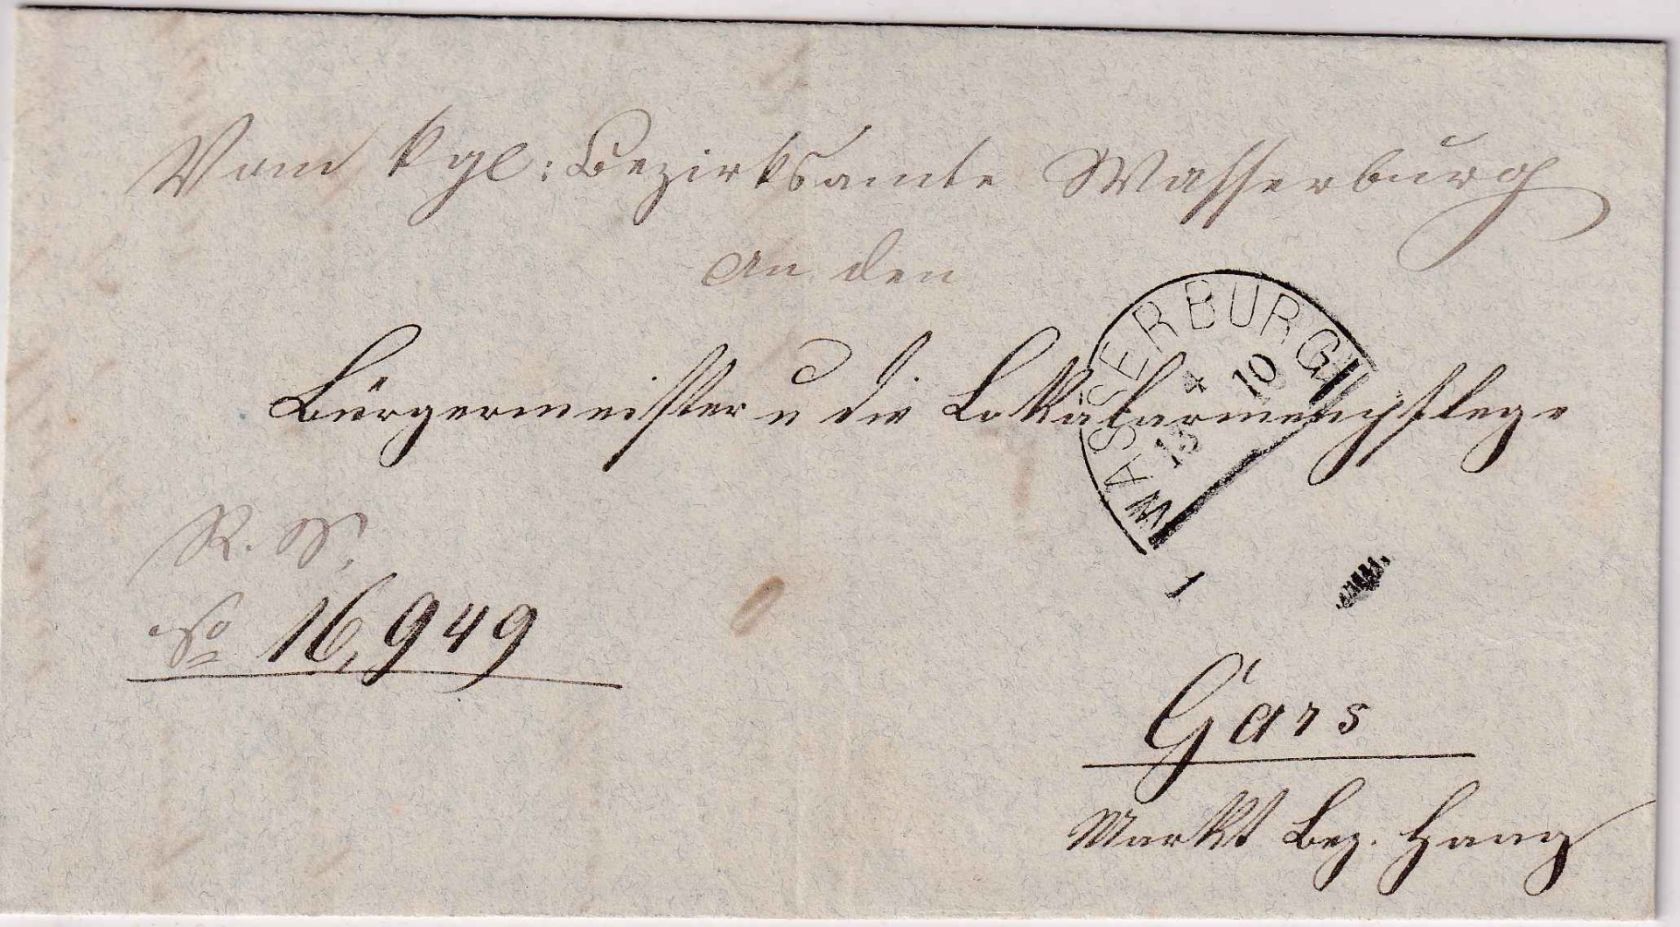 Vom kgl: Bezirksamte Wasserburg
An den
Bürgermeister u die Lokalarmenpflege
WASSERBURG
4 10
15
1
R. S.
No 16,949
Gars
Markt Bez. Haag